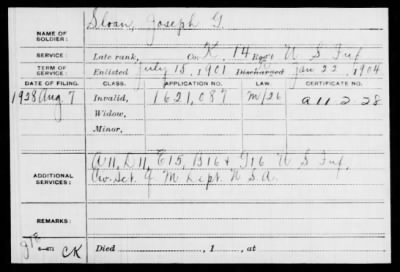 NAME OF SOLDIER: Sloan, Joseph G.
SERVICE: Late rank, Co. K, 14 Reg't U S Inf
TERM OF SERVICE: Enlisted July 15, 1901 Discharged Jan 22, 1904
DATE OF FILING. CLASS. APPLICATION NO. CERTIFICATE NO.
1928 Aug 7 Invalid, 1621,087 M/26 a 11-2-28
Widow,
Minor,
ADDITIONAL SERVICES: A11, D11, E15, B16 & I16 U S Inf,
Q M Dept. U.S.A.
REMARKS:
CK Died , 1 , at